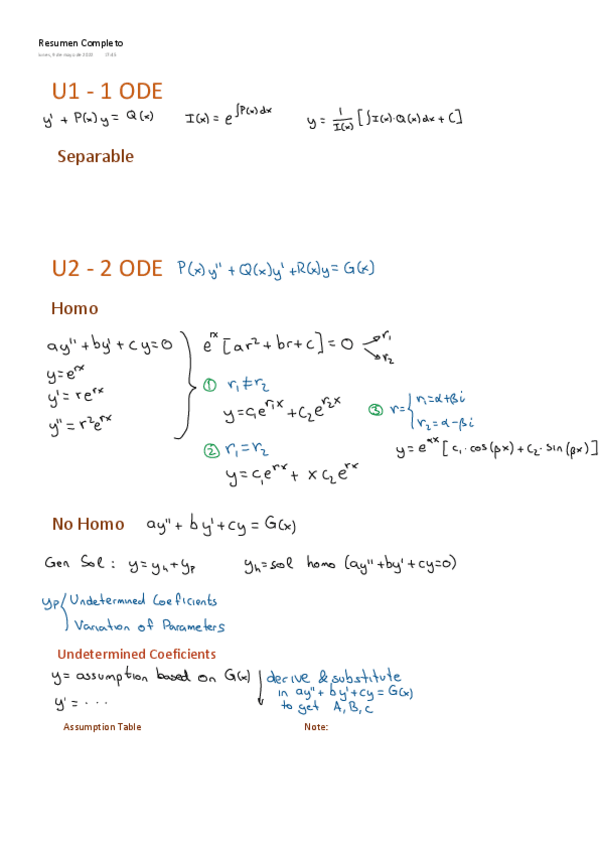 Resumen Completo
U1 - 1 ODE
y' + P(x)y = Q(x)   I(x) = e^∫P(x)dx   y = 1/I(x) [∫I(x)·Q(x)dx + C]
Separable
U2 - 2 ODE   P(x)y'' + Q(x)y' + R(x)y = G(x)
Homo
ay'' + by' + cy = 0   e^rx [ar² + br + c] = 0   r₁
r₂
y = e^rx
① r₁ ≠ r₂
y' = re^rx
y = c₁e^r₁x + C₂e^r₂x
③ r = { r₁ = α + βi
r₂ = α - βi
y'' = r²e^rx
② r₁ = r₂
y = e^αx [c₁·cos(βx) + c₂·sin(βx)]
y = c₁e^rx + xc₂e^rx
No Homo   ay'' + by' + cy = G(x)
Gen Sol: y = yh + yp   yh = sol homo (ay'' + by' + cy = 0)
yp Undetermined Coeficients
Variation of Parameters
Undetermined Coeficients
y = assumption based on G(x)   derive & substitute
in ay'' + by' + cy = G(x)
y' = ...
to get A, B, C
Assumption Table   Note: